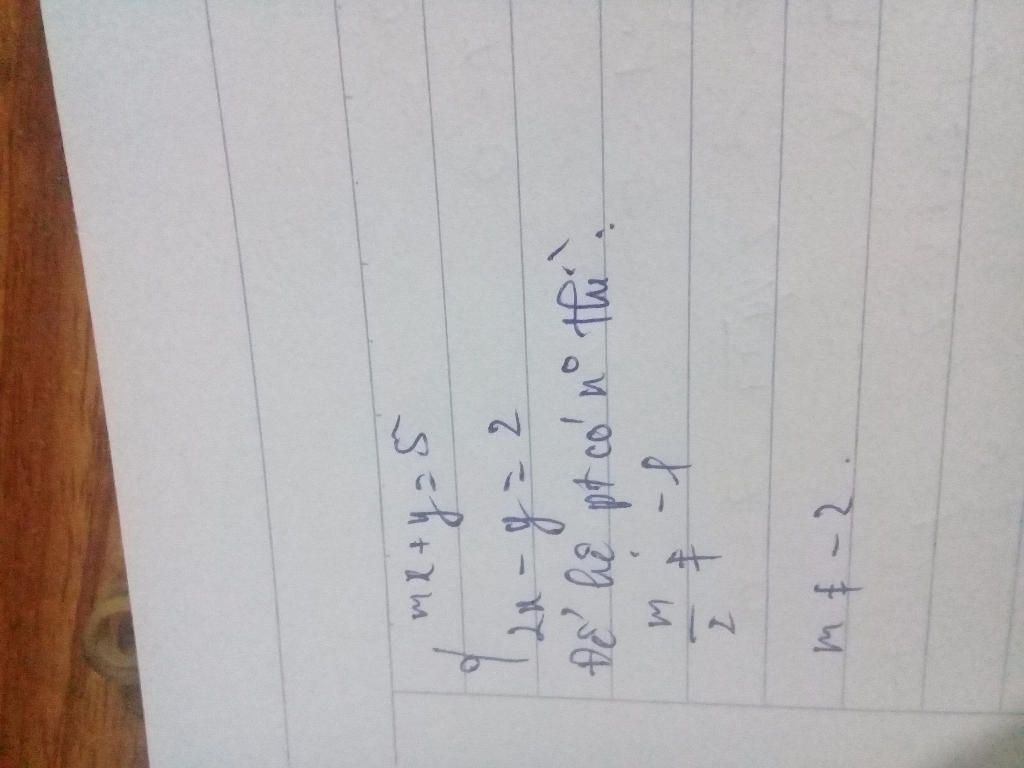 mx + y = 5
2x - y = 2
Để hệ pt có n° thì:
m/2 ≠ -1
m ≠ -2.